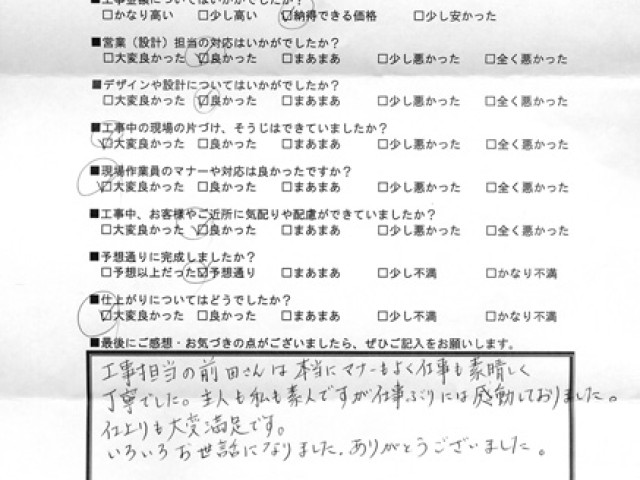 ■工事金額についてはいかがでしたか？
□かなり高い □少し高い ☑納得できる価格 □少し安かった
■営業（設計）担当の対応はいかがでしたか？
□大変良かった ☑良かった □まあまあ □少し悪かった □全く悪かった
■デザインや設計についてはいかがでしたか？
□大変良かった ☑良かった □まあまあ □少し悪かった □全く悪かった
■工事中の現場の片づけ、そうじはできていましたか？
☑大変良かった □良かった □まあまあ □少し悪かった □全く悪かった
■現場作業員のマナーや対応は良かったですか？
☑大変良かった □良かった □まあまあ □少し悪かった □全く悪かった
■工事中、お客様やご近所に気配りや配慮ができていましたか？
□大変良かった ☑良かった □まあまあ □少し悪かった □全く悪かった
■予想通りに完成しましたか？
□予想以上だった ☑予想通り □まあまあ □少し不満 □かなり不満
■仕上がりについてはどうでしたか？
☑大変良かった □良かった □まあまあ □少し不満 □かなり不満
■最後にご感想・お気づきの点がございましたら、ぜひご記入をお願いします。
工事担当の前田さんは本当にマナーもよく仕事も素晴しく
丁寧でした。主人も私も素人ですが仕事ぶりには感動しておりました。
仕上りも大変満足です。
いろいろお世話になりました。ありがとうございました。